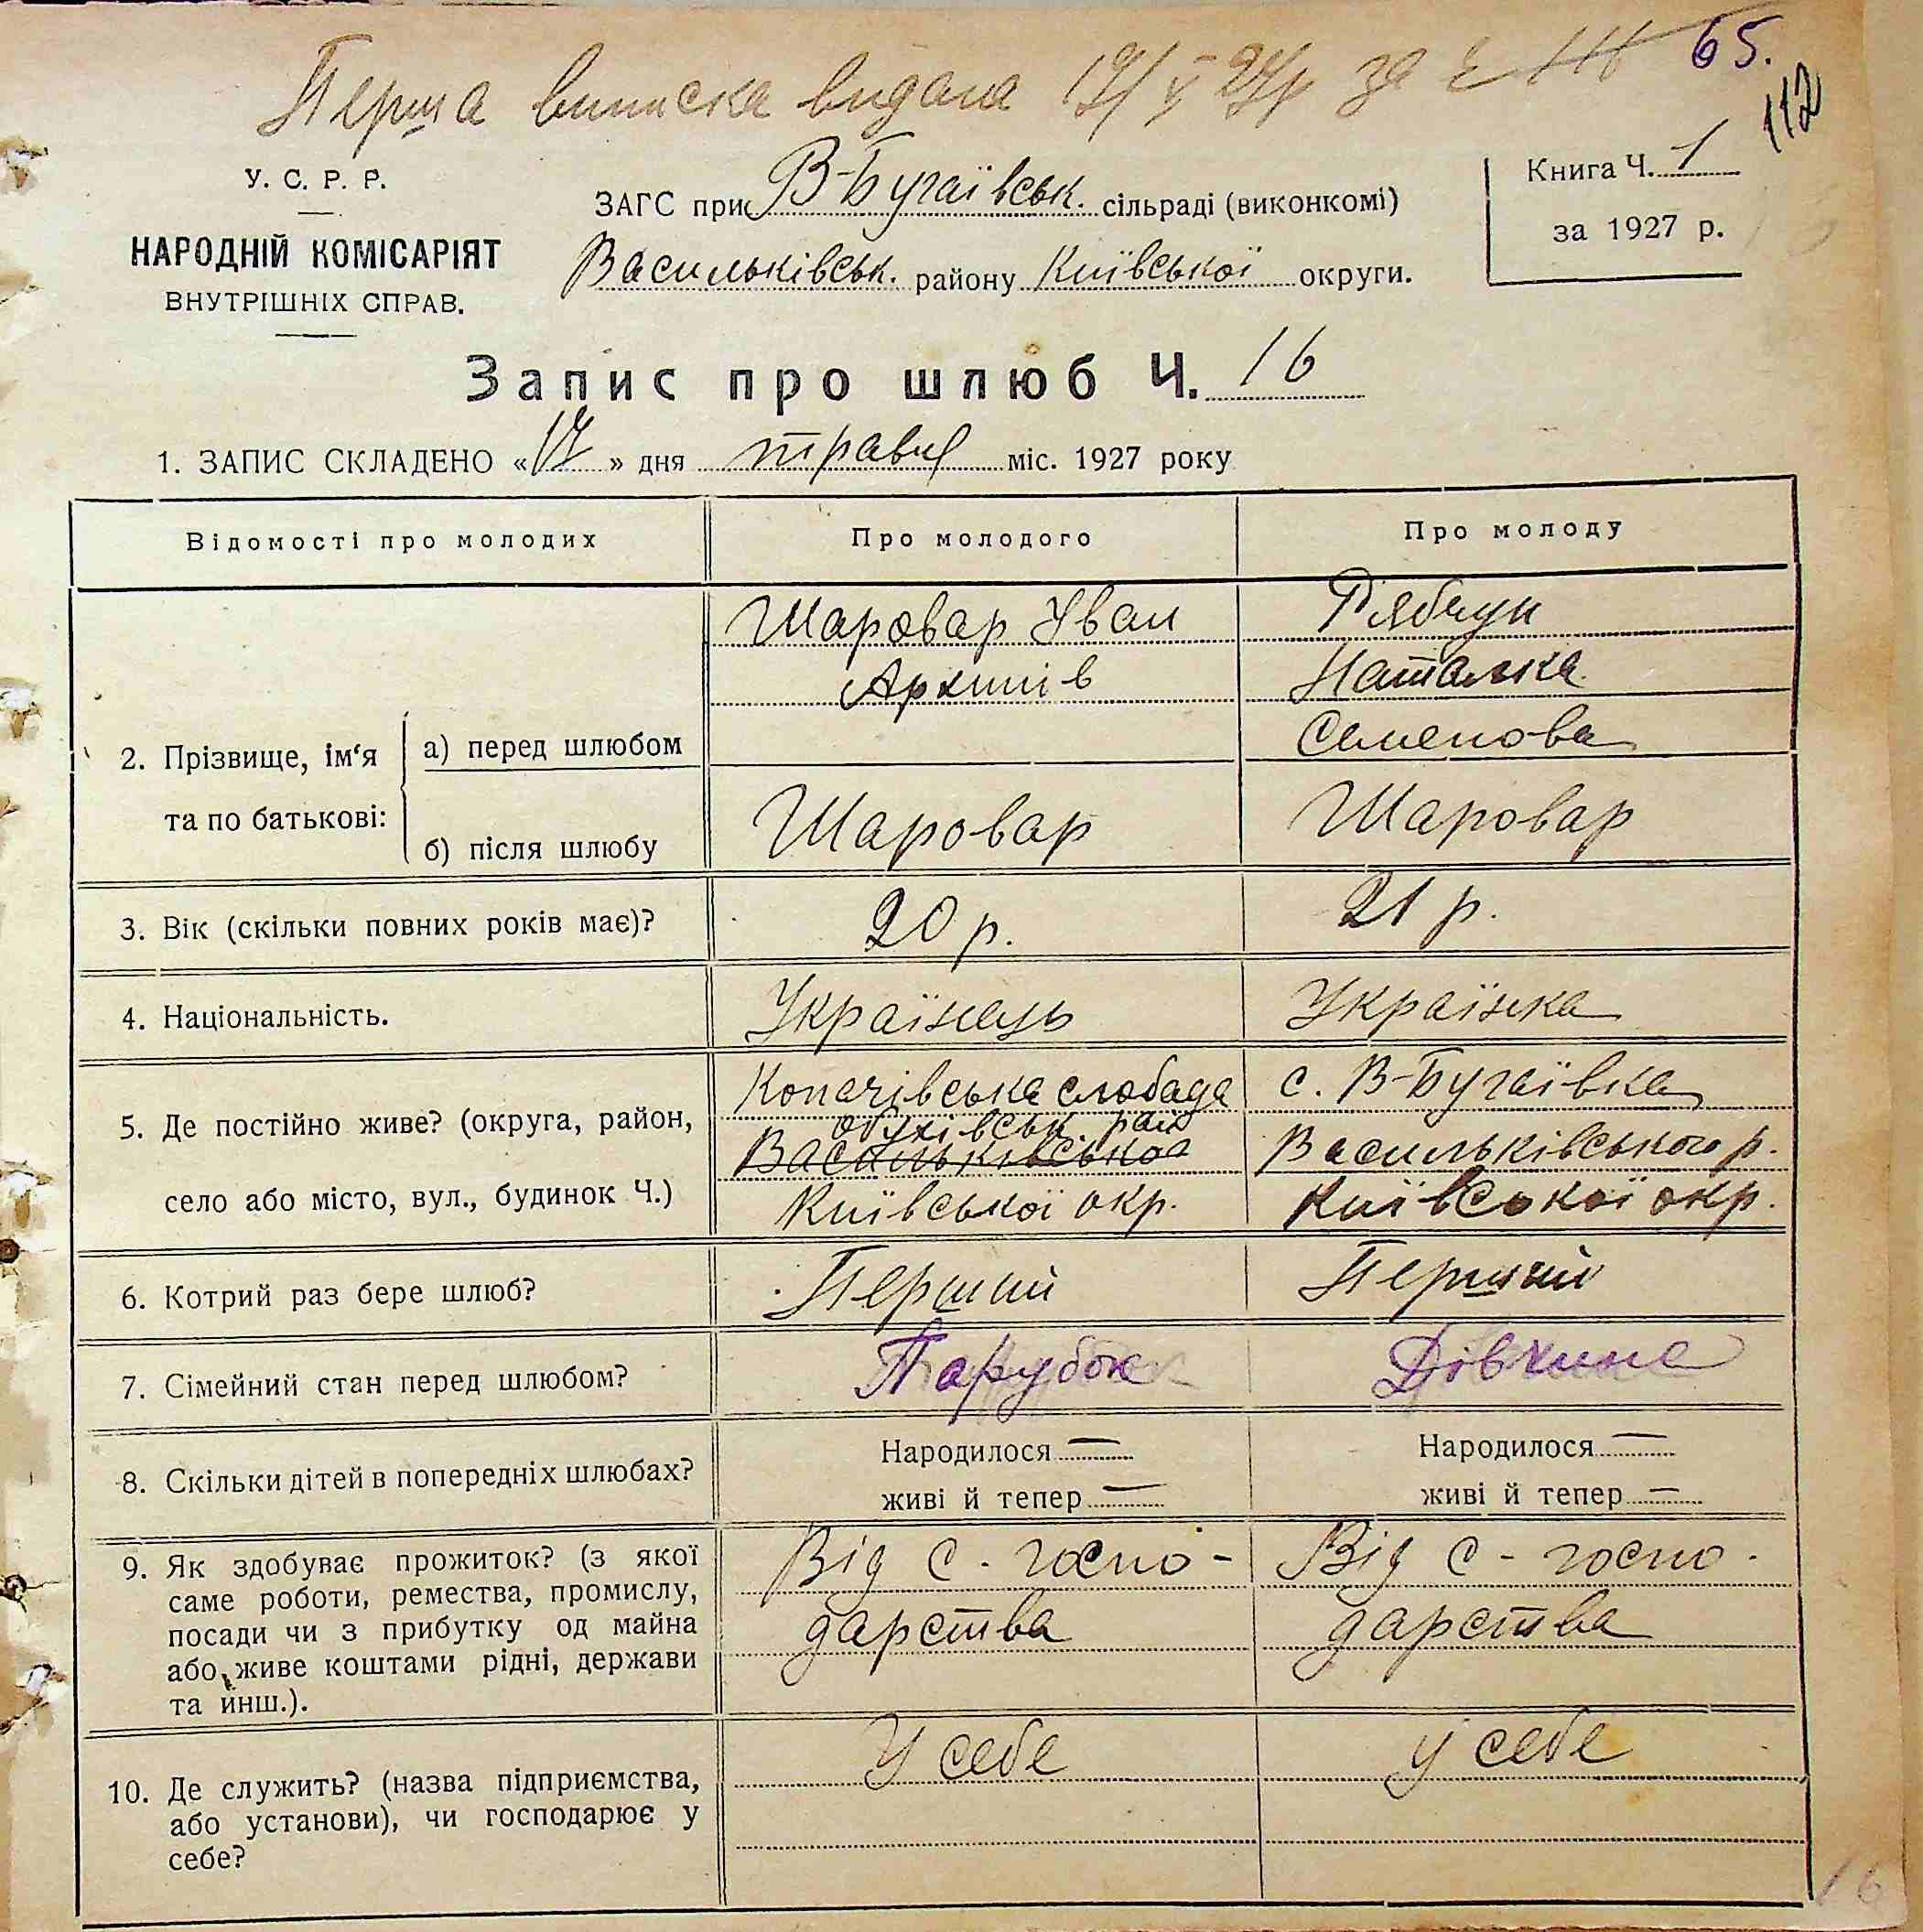 65.
Перша виписка видана 17/V 27р за №
112
У. С. Р. Р.
НАРОДНІЙ КОМІСАРІЯТ
ВНУТРІШНІХ СПРАВ.
ЗАГС при В-Бугаївськ. сільраді (виконкомі)
Васильківськ. району Київської округи.
Книга Ч. 1
за 1927 р.
Запис про шлюб Ч. 16
1. ЗАПИС СКЛАДЕНО «17» дня травня міс. 1927 року
Відомості про молодих
Про молодого
Про молоду
2. Прізвище, ім'я
та по батькові:
а) перед шлюбом
Шаровар Іван
Архипів
Рябчун
Наталка
Семенова
б) після шлюбу
Шаровар
Шаровар
3. Вік (скільки повних років має)?
20 р.
21 р.
4. Національність.
Українець
Українка
5. Де постійно живе? (округа, район,
село або місто, вул., будинок Ч.)
Копачівська слобода
Обухівськ. рай
Васильківської
Київської окр.
с. В-Бугаївка
Васильківського р.
Київської окр.
6. Котрий раз бере шлюб?
Перший
Перший
7. Сімейний стан перед шлюбом?
Парубок
Дівчина
8. Скільки дітей в попередніх шлюбах?
Народилося —
живі й тепер —
Народилося —
живі й тепер —
9. Як здобуває прожиток? (з якої
саме роботи, ремества, промислу,
посади чи з прибутку од майна
або живе коштами рідні, держави
та йнш.).
Від с.-госпо-
дарства
Від с-госпо-
дарства
10. Де служить? (назва підприємства,
або установи), чи господарює у
себе?
У себе
у себе
16